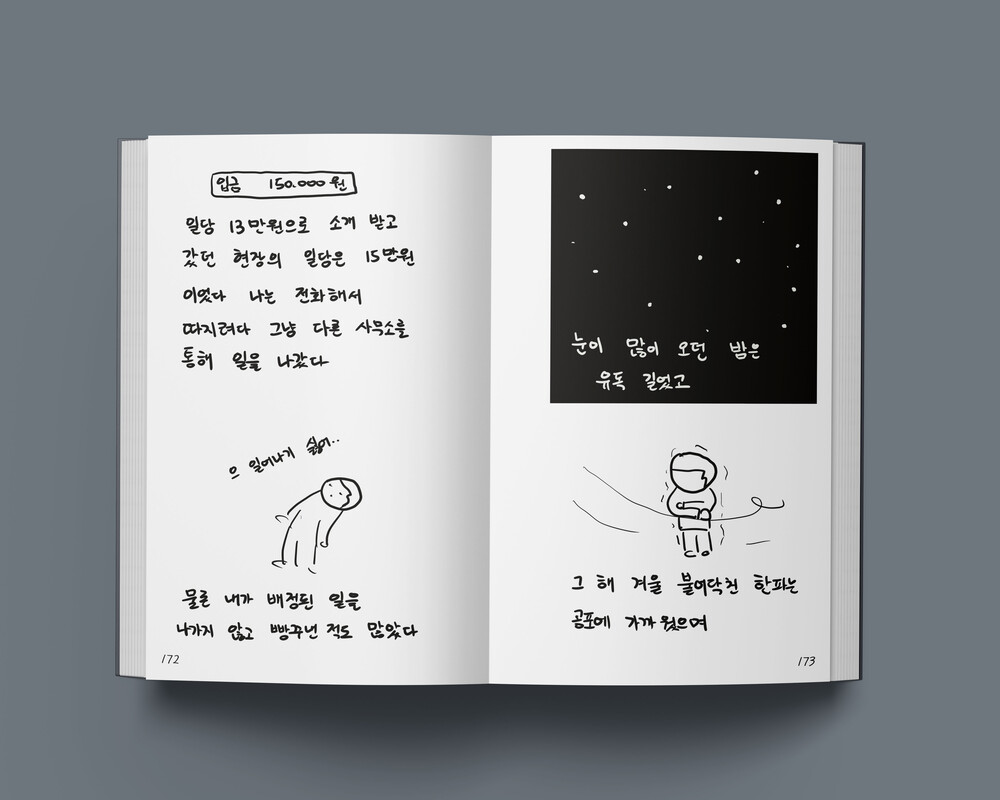 입금 150.000원
일당 13만원으로 소개 받고
갔던 현장의 일당은 15만원
이었다 나는 전화해서
따지려다 그냥 다른 사무소를
통해 일을 나갔다
으 일어나기 싫어..
물론 내가 배정된 일을
나가지 않고 빵꾸낸 적도 많았다
172
눈이 많이 오던 밤은
유독 길었고
그 해 겨울 불어닥친 한파는
공포에 가까웠으며
173